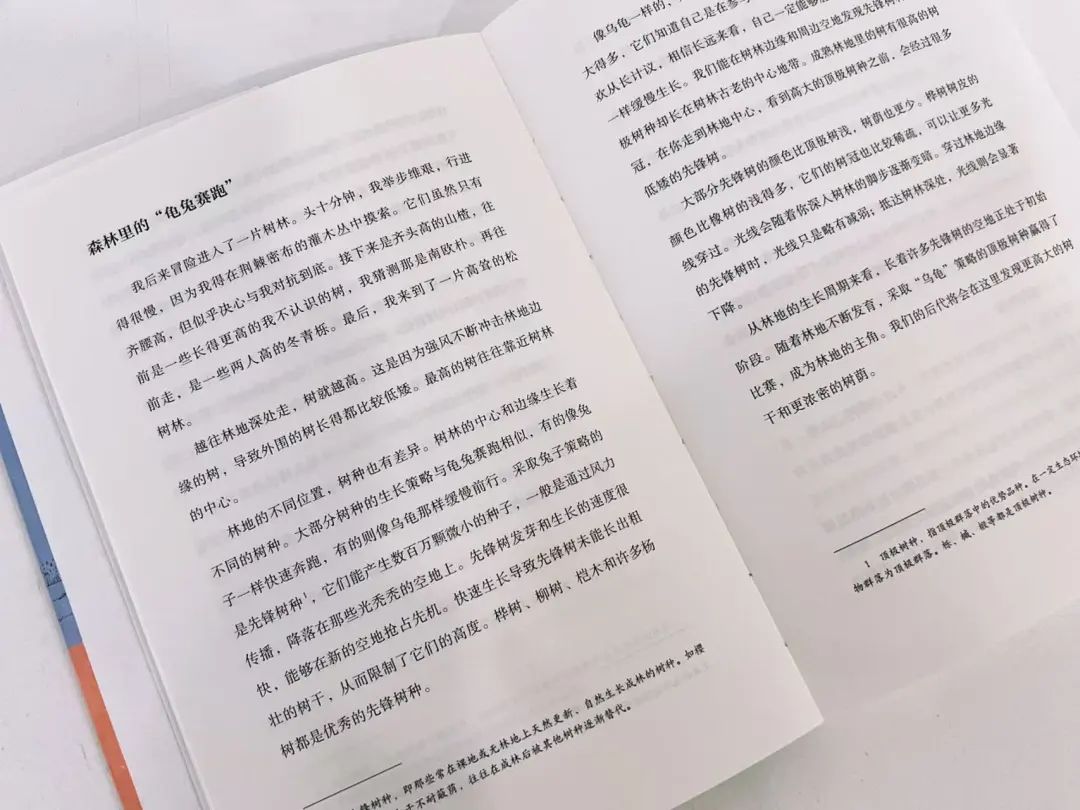 森林里的“龟兔赛跑”
我后来冒险进入了一片树林。头十分钟，我举步维艰，行进
得很慢，因为我得在荆棘密布的灌木丛中摸索。它们虽然只有
齐腰高，但似乎决心与我对抗到底。接下来是齐头高的山楂，往
前是一些长得更高的我不认识的树，我猜测那是南欧朴。再往
前走，是一些两人高的冬青栎。最后，我来到了一片高耸的松
树林。
越往林地深处走，树就越高。这是因为强风不断冲击林地边
缘的树，导致外围的树长得都比较低矮。最高的树往往靠近树林
的中心。
林地的不同位置，树种也有差异。树林的中心和边缘生长着
不同的树种。大部分树种的生长策略与龟兔赛跑相似，有的像兔
子一样快速奔跑，有的则像乌龟那样缓慢前行。采取兔子策略的
是先锋树种¹，它们能产生数百万颗微小的种子，一般是通过风力
传播，降落在那些光秃秃的空地上。先锋树发芽和生长的速度很
快，能够在新的空地抢占先机。快速生长导致先锋树未能长出粗
壮的树干，从而限制了它们的高度。桦树、柳树、桤木和许多杨
树都是优秀的先锋树种。
锋树种，即那些常在裸地或无林地上天然更新、自然生长成林的树种。如樱
不耐蔽荫，往往在成林后被其他树种逐渐替代。
像乌龟一样的，
大得多，它们知道自己是在参与
欢从长计议，相信长远来看，自己一定能够
一样缓慢生长。我们能在树林边缘和周边空地发现先锋树种
极树种却长在树林古老的中心地带。成熟林地里的树有很高的树
冠，在你走到林地中心，看到高大的顶极树种之前，会经过很多
低矮的先锋树。
大部分先锋树的颜色比顶极树浅，树荫也更少。桦树树皮的
颜色比橡树的浅得多，它们的树冠也比较稀疏，可以让更多光
线穿过。光线会随着你深入树林的脚步逐渐变暗。穿过林地边缘
的先锋树时，光线只是略有减弱；抵达树林深处，光线则会显著
下降。
从林地的生长周期来看，长着许多先锋树的空地正处于初始
阶段。随着林地不断发育，采取“乌龟”策略的顶极树种赢得了
比赛，成为林地的主角。我们的后代将会在这里发现更高大的树
干和更浓密的树荫。
1 顶极树种，指顶极群落中的优势品种。在一定生态环境
物群落为顶极群落。栎、槭、椴等都是顶极树种。